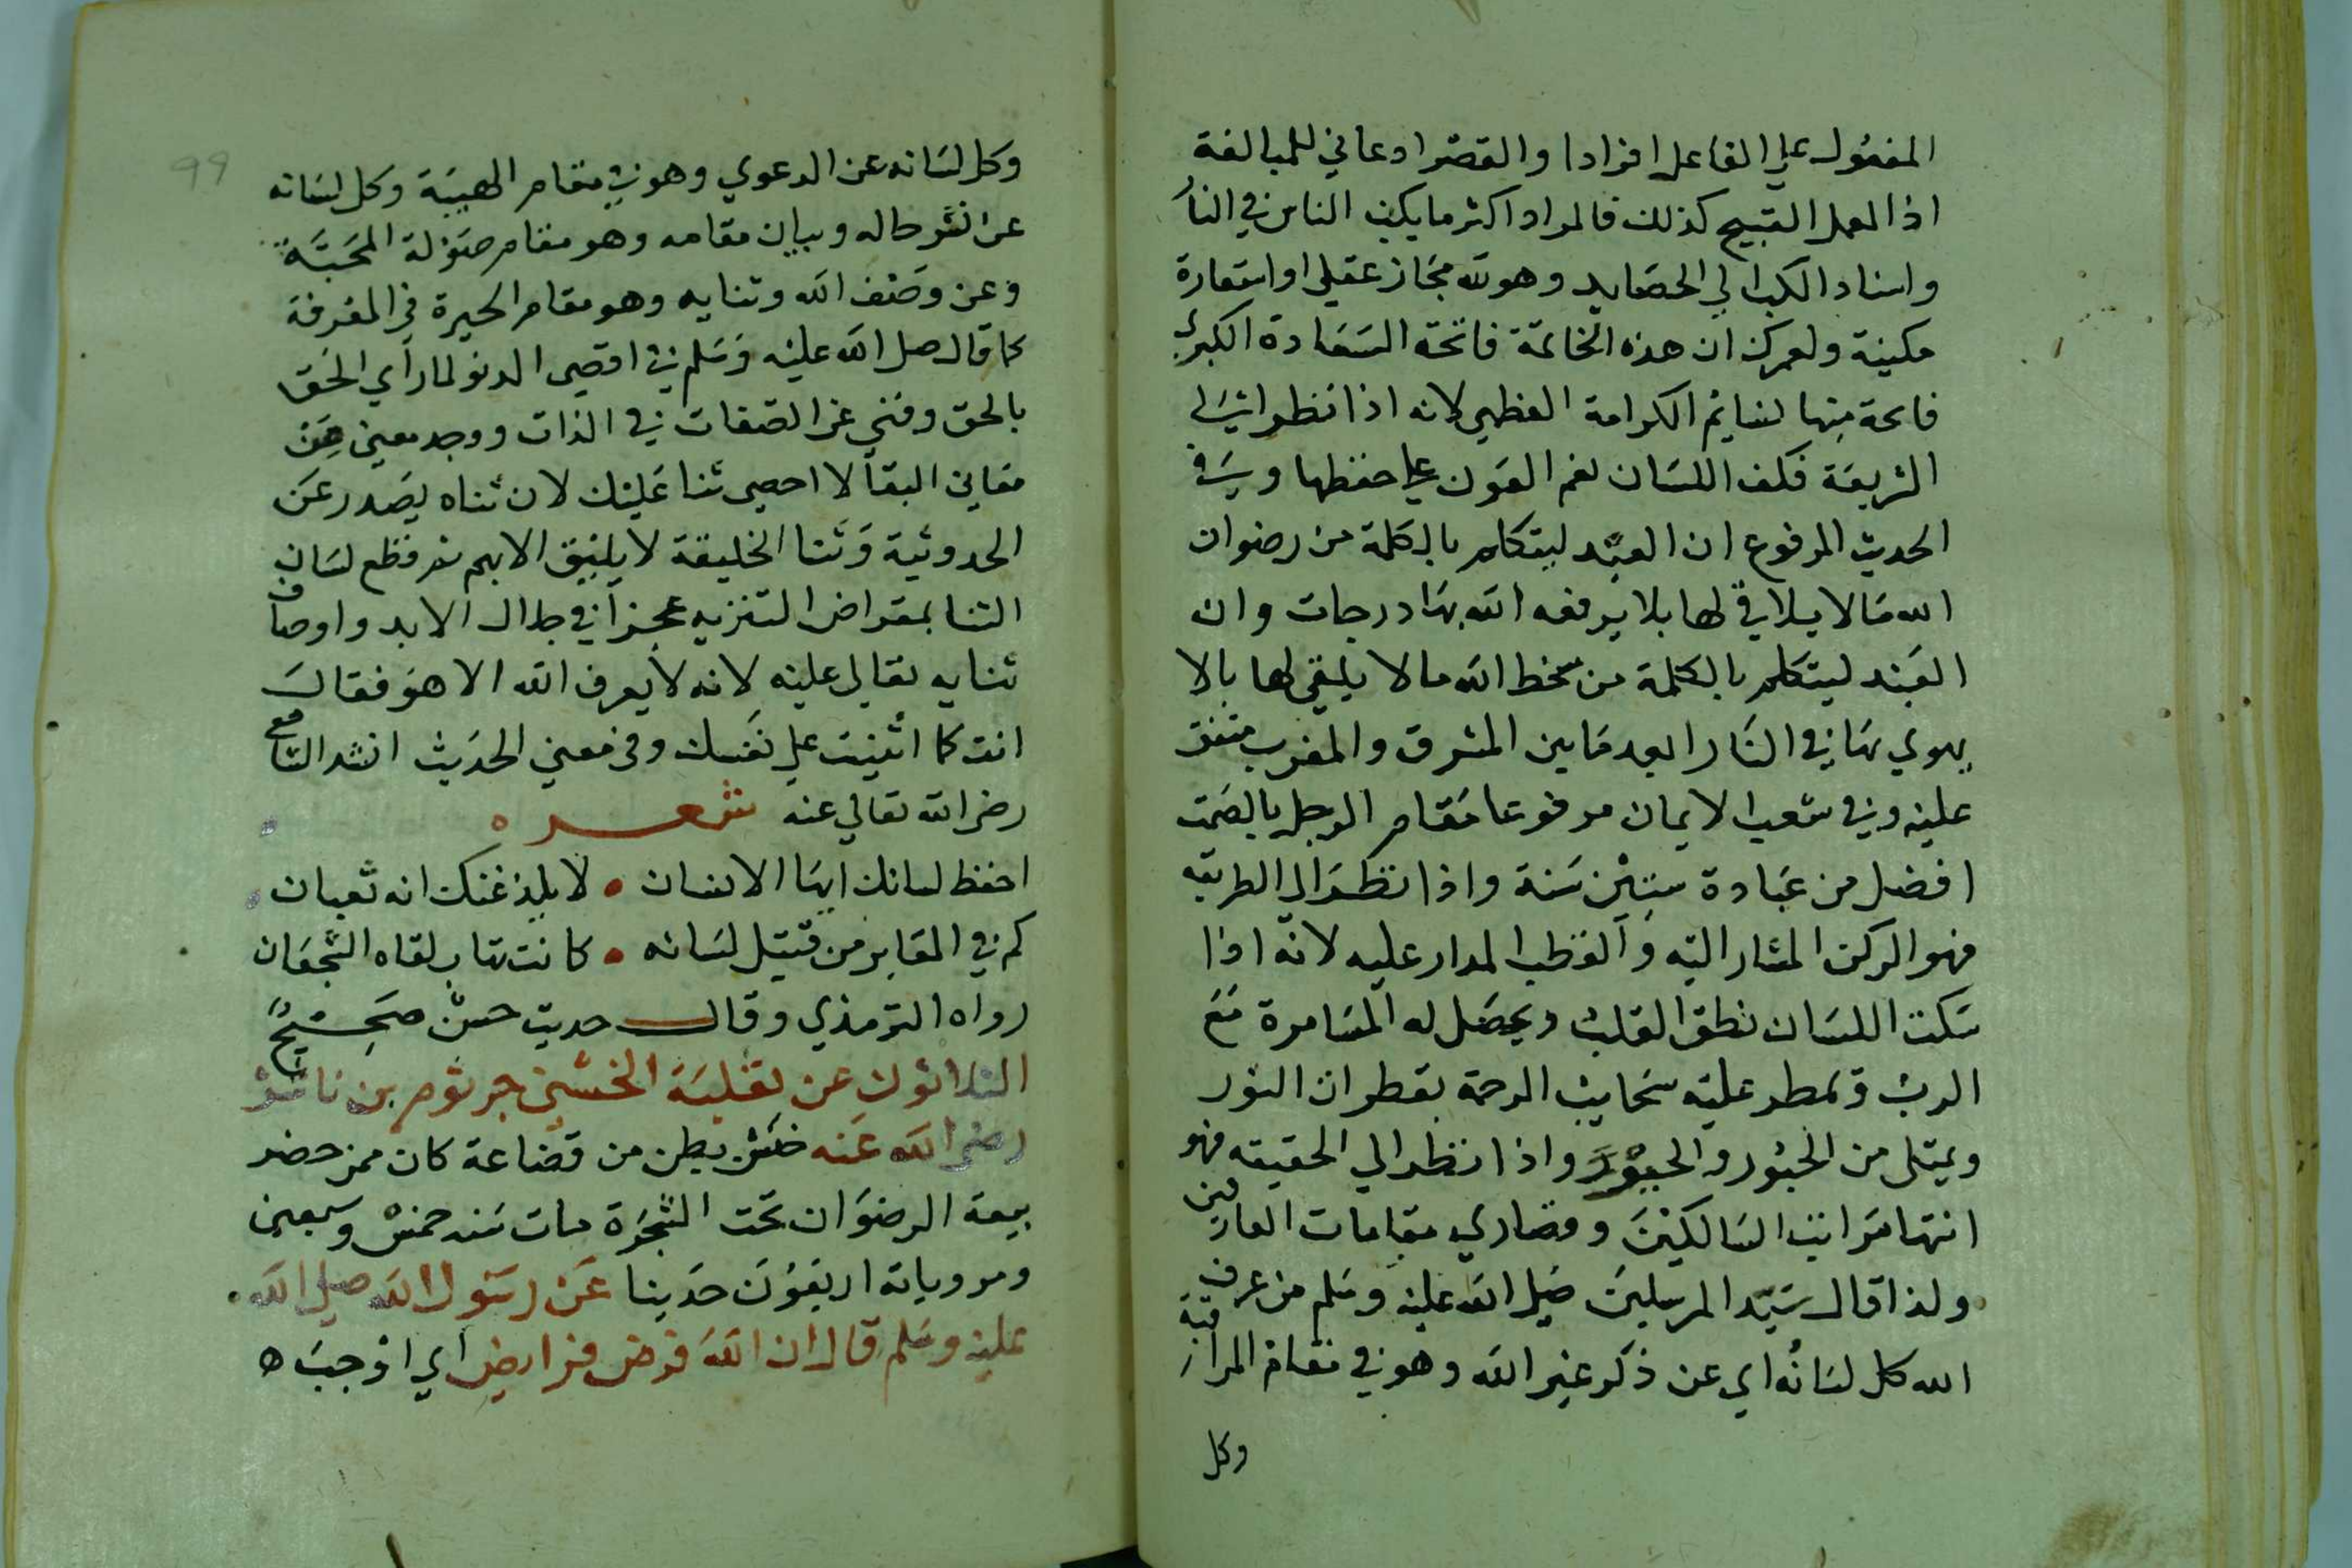 المفعول علي الفاعل افرادا والقصر ادعائي للمبالغة
اذ العمل القبيح كذلك فالمراد اكثر ما يكب الناس في النار
واسناد الكب الي الحصايد وهو لله مجاز عقلي او استعارة
مكينة ولعمرك ان هذه الخاتمة فاتحة السعادة الكبري
فاتحة منها لنايم الكرامة العظمي لانه اذا نظر الي
الشريعة فكف اللسان نعم العون علي حفظها وسر في
الحديث المرفوع ان العبد ليتكلم بالكلمة من رضوان
الله ما لا يلاقي لها بلا يرفعه الله بها درجات وان
العبد ليتكلم بالكلمة من سخط الله ما لا يلقي لها بالا
يهوي بها في النار ابعد ما بين المشرق والمغرب متفق
عليه وفي شعب الايمان مرفوعا مقام الرجل بالصمت
افضل من عبادة ستين سنة واذا نظر الي الطريقه
فهو الركن المشار اليه والقطب المدار عليه لانه اذا
سكت اللسان نطق القلب ويحصل له المسامرة مع
الرب وتمطر عليه سحايب الرحمة بقطران النور
ويمتلى من الحبور والحبور واذا نظر الي الحقيقه فهو
انتها مراتب السالكين وقصاري مقامات العارفين
ولذا قال سيد المرسلين صلي الله عليه وسلم من عرف
الله كل لسانه اي عن ذكر غير الله وهو في مقام المراقبة
وكل
99
وكل لسانه عن الدعوي وهو في مقام الهيبة وكل لسانه
عن نشر حاله وبيان مقامه وهو مقام صولة المحبة
وعن وصف الله وثنايه وهو مقام الحيرة في المعرفة
كما قال صلى الله عليه وسلم في اقصي الدنو لما راي الحق
بالحق وفني عن الصفات في الذات ووجد معين من
معاني البقا لا احصي ثنا عليك لان ثناه يصدر عن
الحدوثية وثنا الخليقة لا يليق الا بهم ثم قطع لسان
الثنا بمقراض التنزيه عجزا في جلال الابد واوصاف
ثنايه تعالي عليه لانه لا يعرف الله الا هو فقال
انت كما اثنيت علي نفسك وفي معني الحديث انشد الشافعي
رضي الله تعالي عنه شعر ه
احفظ لسانك ايها الانسان • لا يلدغنك انه ثعبان
كم في المقابر من قتيل لسانه • كانت تهاب لقاه الشجعان
رواه الترمذي وقال حديث حسن صحيح
الثلاثون عن ثعلبة الخشني جرثوم بن ناشر
رضي الله عنه خشن بطن من قضاعة كان ممن حضر
بيعة الرضوان تحت الشجرة مات سنه خمس وسبعين
ومروياته اربعون حديثا عن رسول الله صلي الله
عليه وسلم قال ان الله فرض فرايض اي اوجب ه